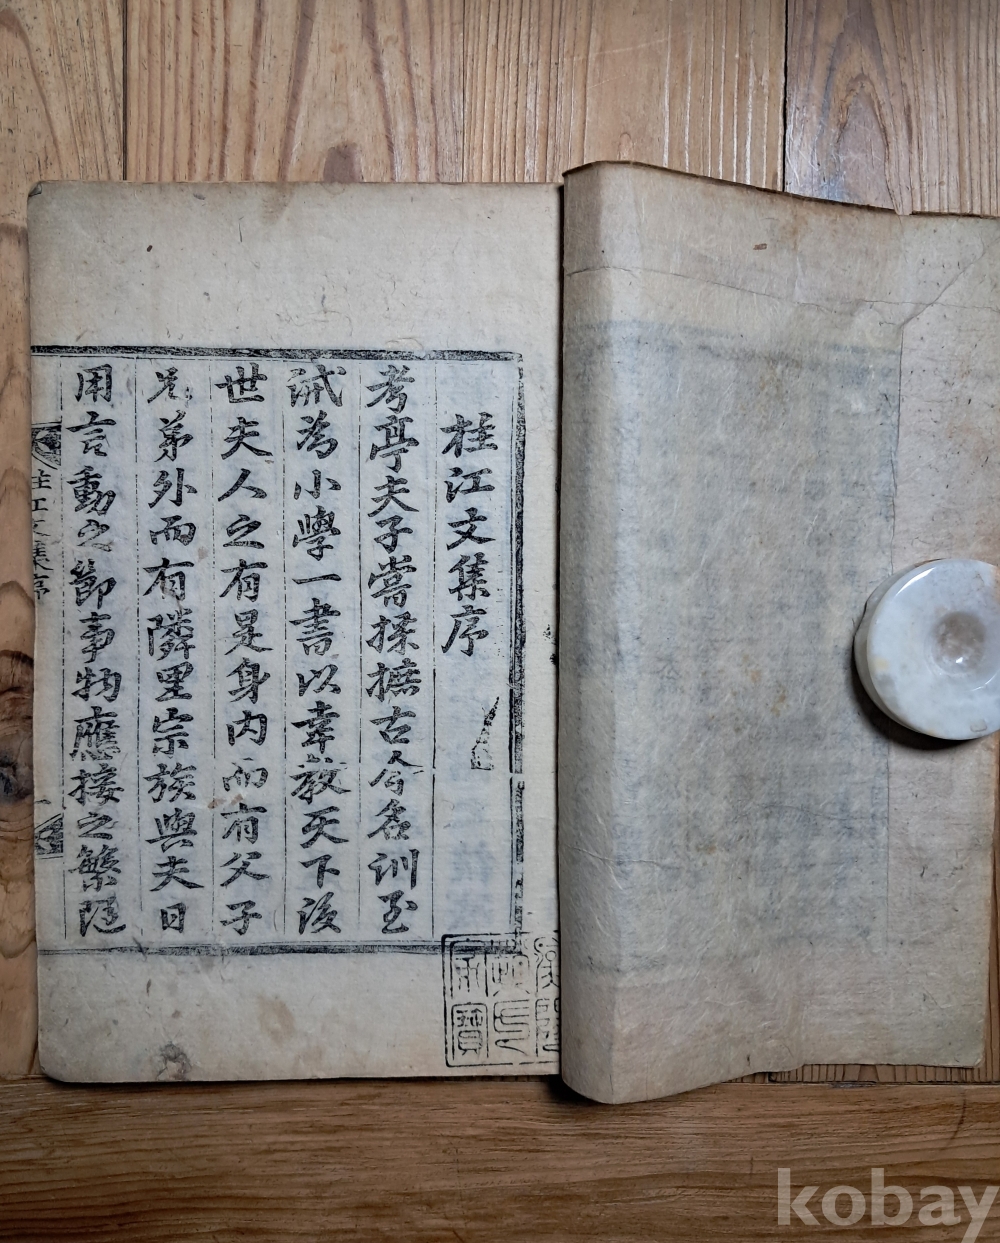 桂江文集序
考亭夫子嘗採摭古今名訓至
誡為小學一書以幸教天下後
世夫人之有是身內而有父子
兄弟外而有隣里宗族與夫日
用言動之節事物應接之繁隨
桂江文集序
一
家寶
kobay